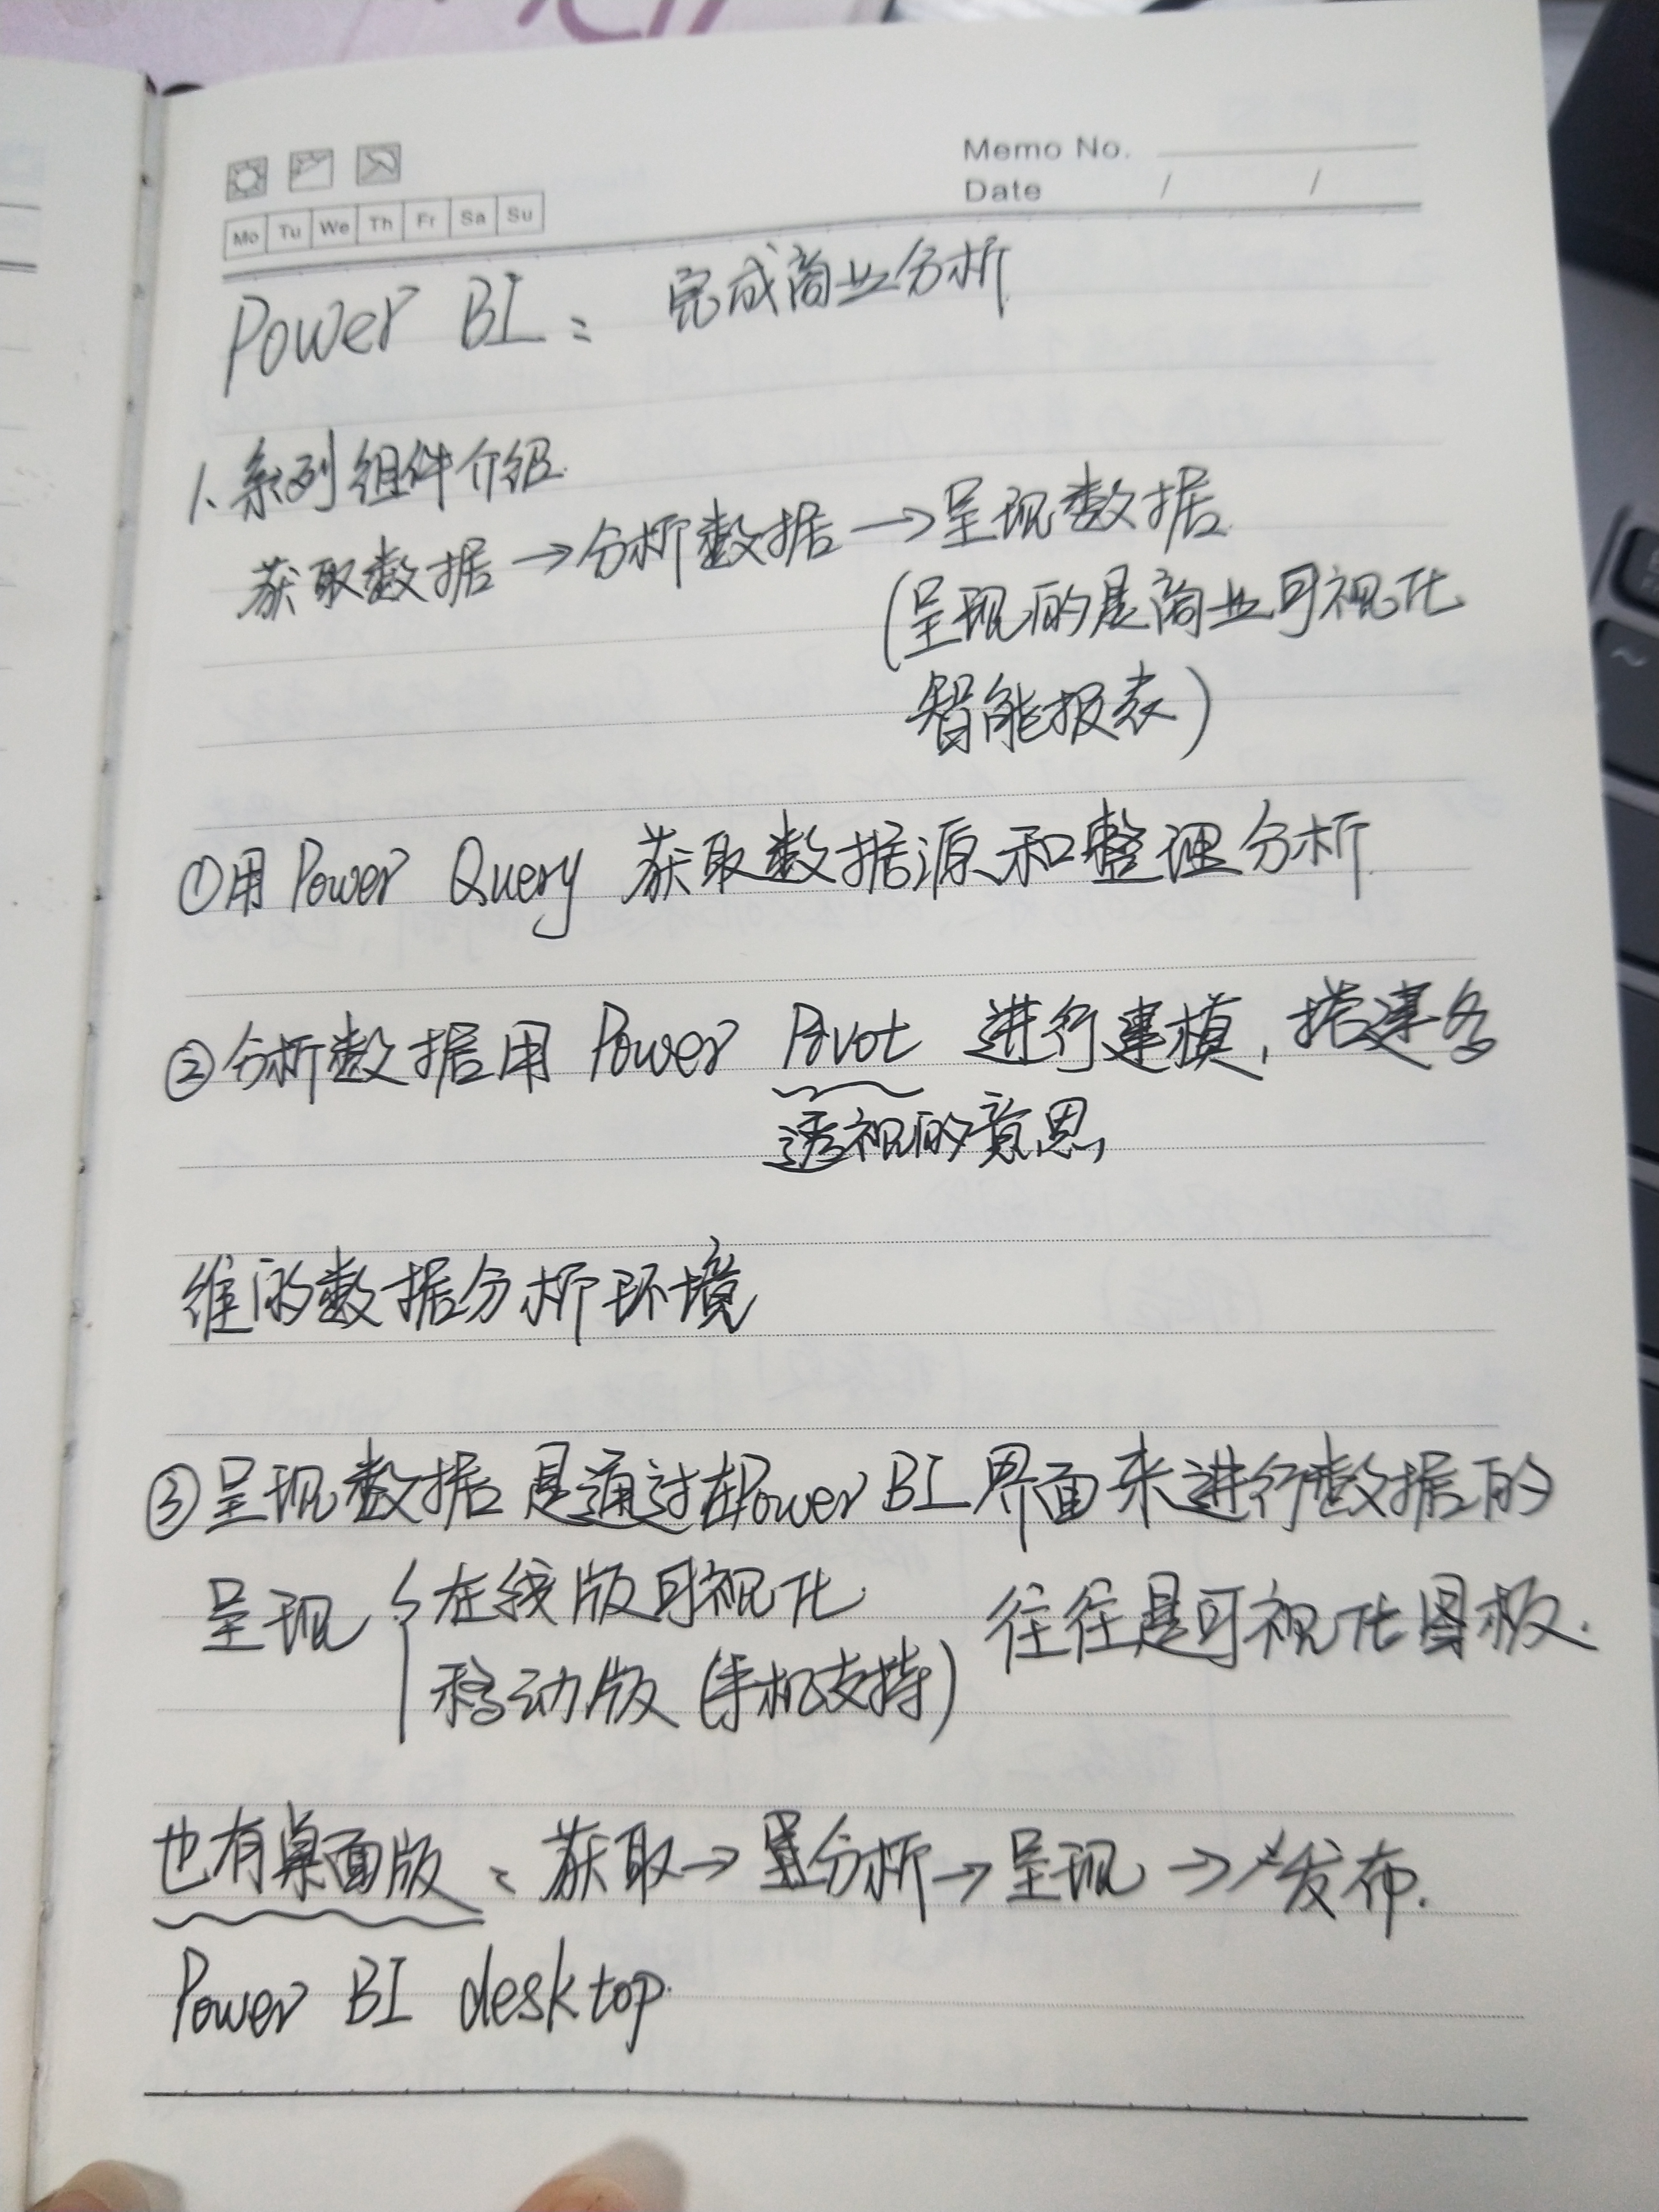 Memo No.
Date / /
Mo Tu We Th Fr Sa Su
Power BI: 完成商业分析
1、系列组件介绍
获取数据→分析数据→呈现数据
(呈现的是商业可视化
智能报表)
①用 Power Query 获取数据源和整理分析
②分析数据用 Power Pivot 进行建模,搭建多
透视的意思
维的数据分析环境
③呈现数据是通过在Power BI 界面来进行数据的
呈现 { 在线版可视化 往往是可视化图板.
移动版 (手机支持)
也有桌面版: 获取→分析→呈现→发布.
Power BI desktop